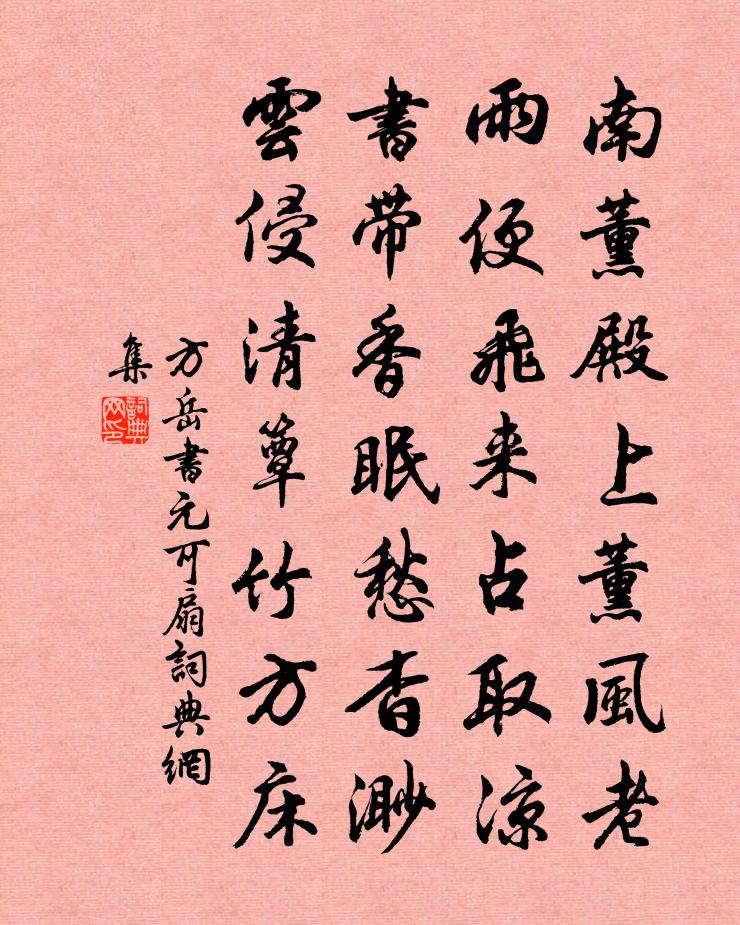 南薰殿上薰風老
雨便飛来占取涼
書帶香眠愁杳渺
雲侵清簟竹方床
方岳書元可扇詞典網
集
詞典网印